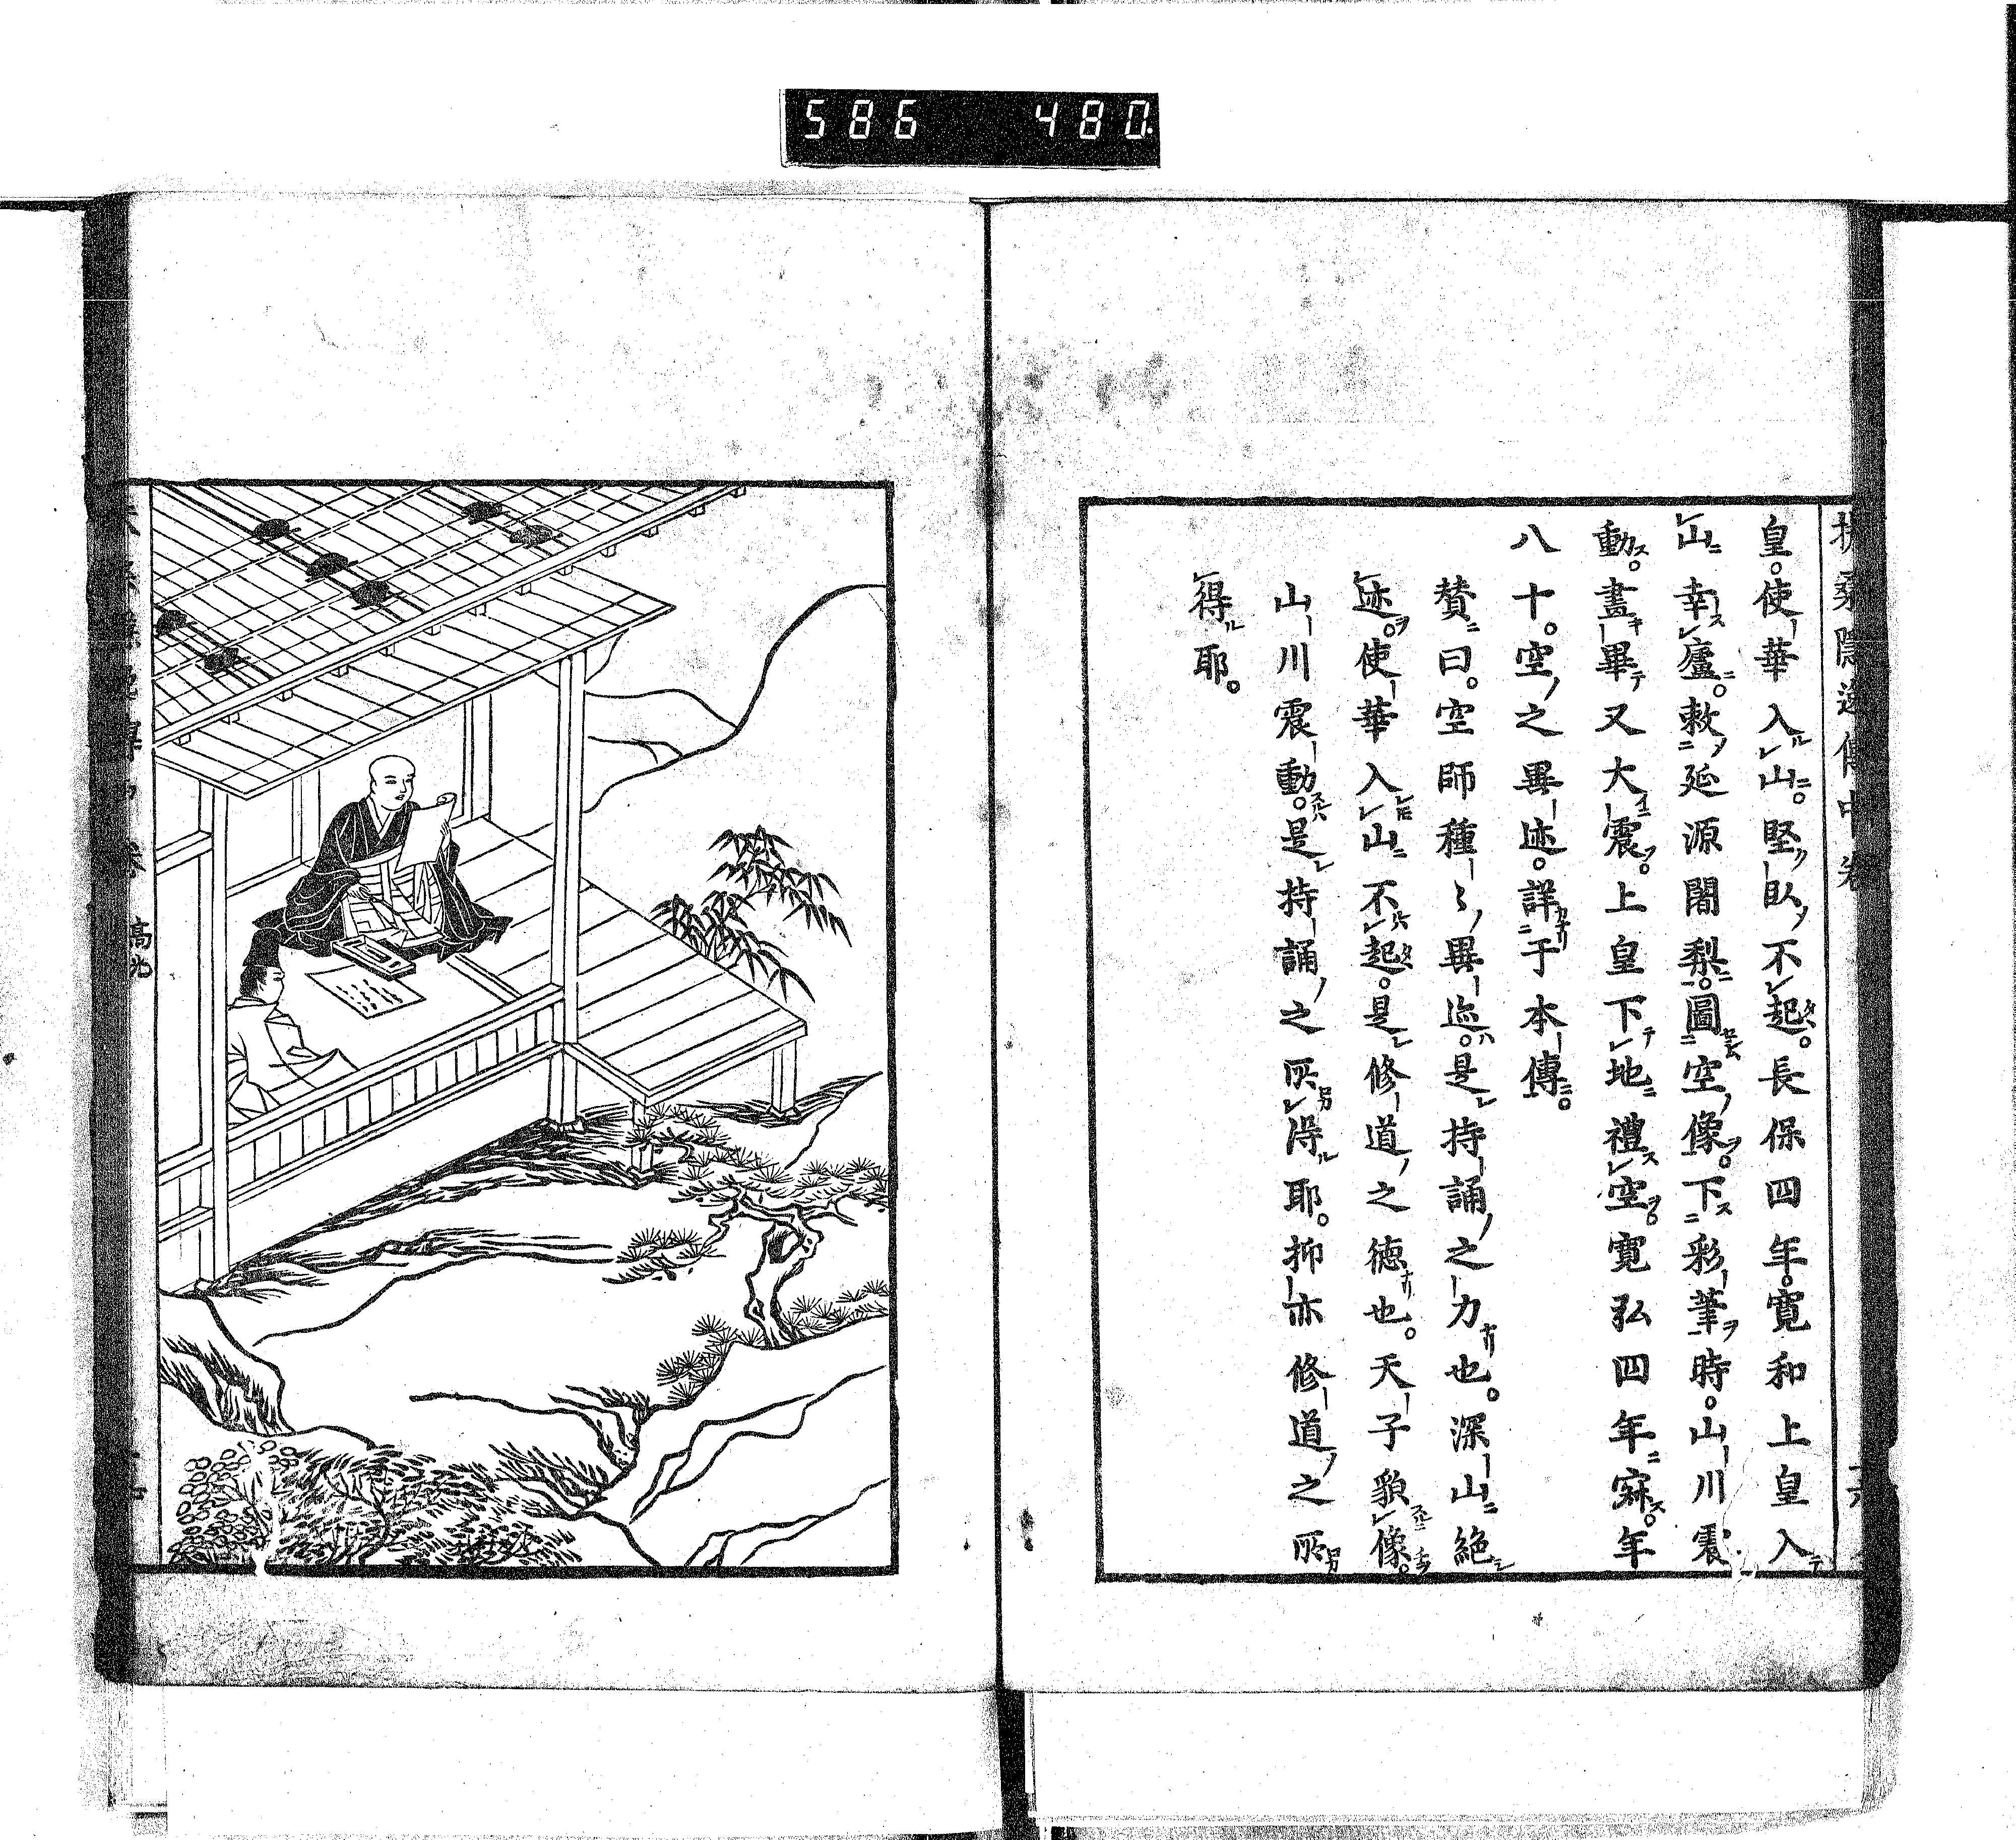 586 480.
扶桑隱逸傳中卷
皇。使華入山。堅臥不起。長保四年。寛和上皇入
山幸廬。敕延源闍梨。圖空像。下彩筆時。山川震
動。畫畢又大震。上皇下地禮空。寛弘四年寂。年
八十。空之異迹。詳于本傳。
賛曰。空師種〻異迹。是持誦之力也。深山絶
迹。使華入山不起。是修道之德也。天子貌像。
山川震動。是持誦之所得耶。抑亦修道之所
得耶。
高光